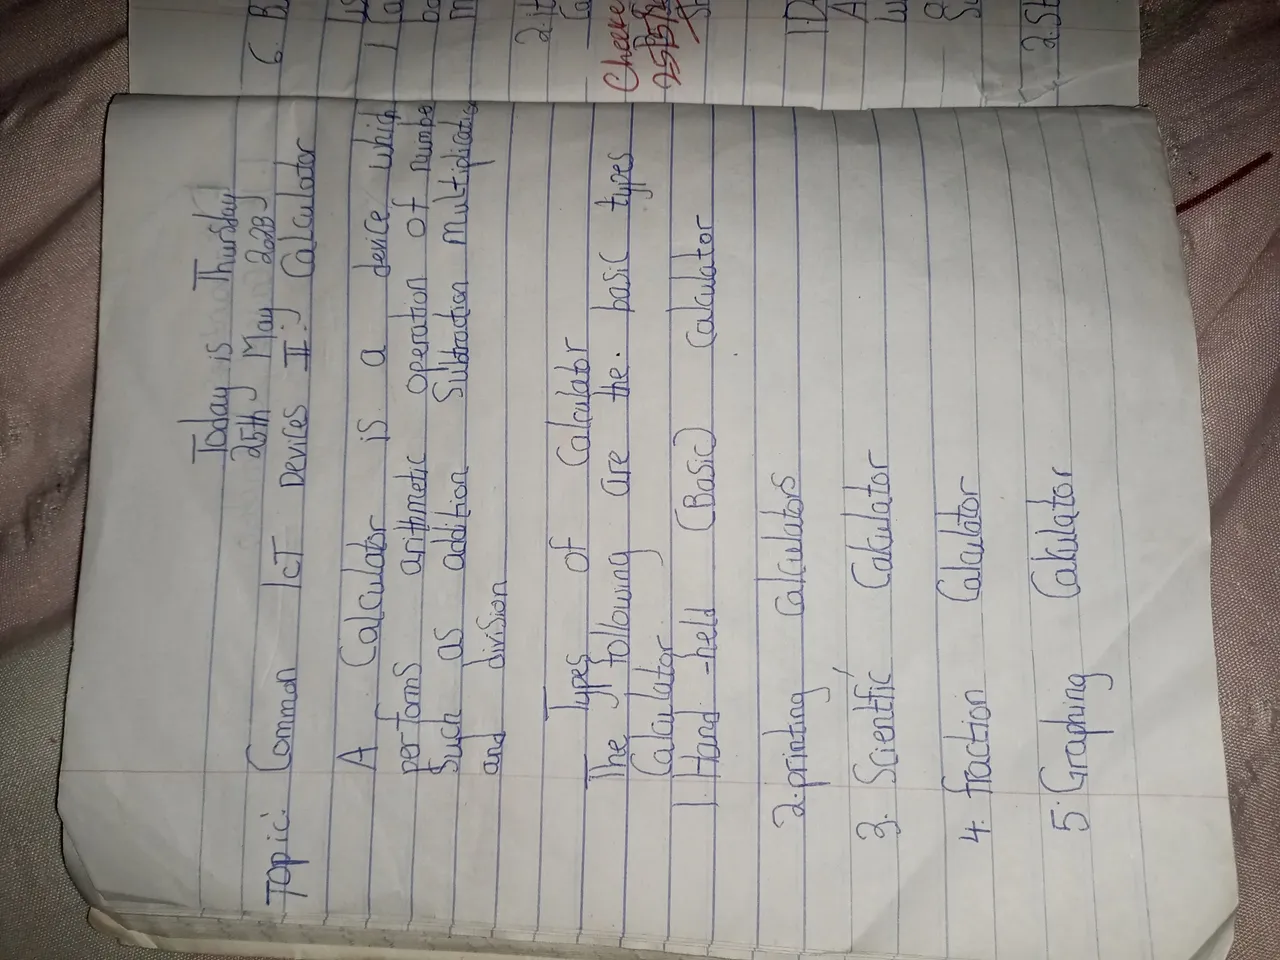 Today is Thursday
25th May 2023
Topic: Common IcT Devices II: Calculator
A Calculator is a device which
performs arithmetic operation of numbe
Such as addition Subtraction multiplicatio
and division
Types of Calculator
The following are the. basic types
Calculator
1. Hand-held (Basic) Calculator
2. printing Calculators
3. Scientfic Calculator
4. fraction Calculator
5. Graphing Calculator
6. B
1
2. it
Cheeke
1. D
2. St